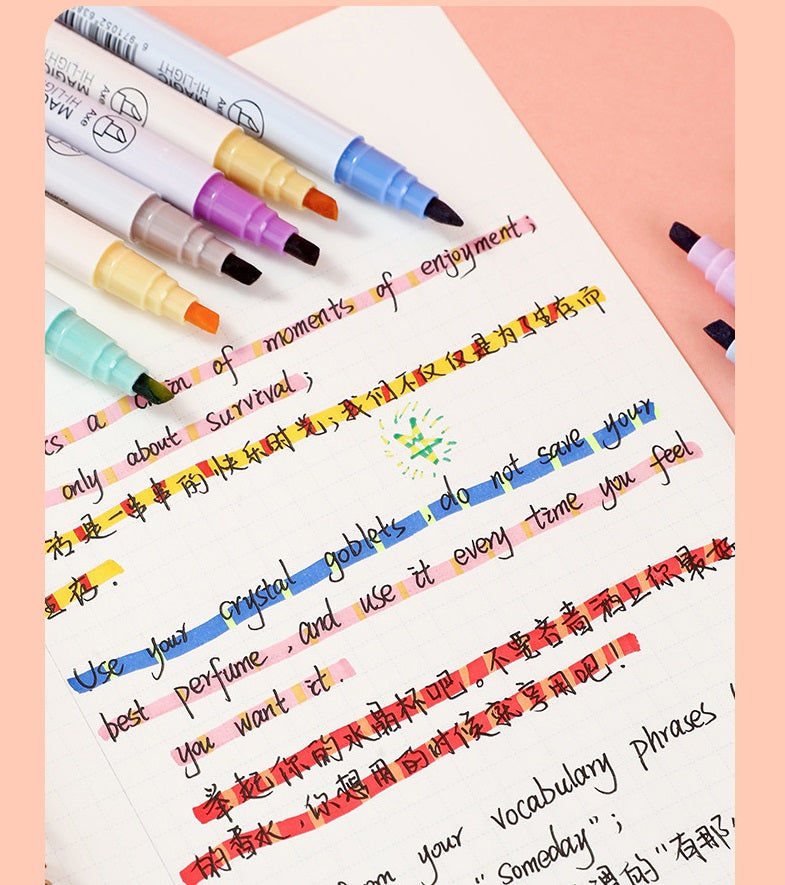 6 971052 636
MAGIC
HI-LIGHT
Axe
MAGIC
HI-LIGHT
Axe
MAG
HI-LIGHT
Axe
a chain of moments of enjoyment;
only about survival;
活是一串串的快乐时光;我们不仅仅是为了生存而
生存.
Use your crystal goblets, do not save your
best perfume, and use it every time you feel
you want it.
举起你的水晶杯吧。不要吝啬洒上你最好
的香水,你想用的时候就享用吧!
your vocabulary phrases
"someday";
的"有那